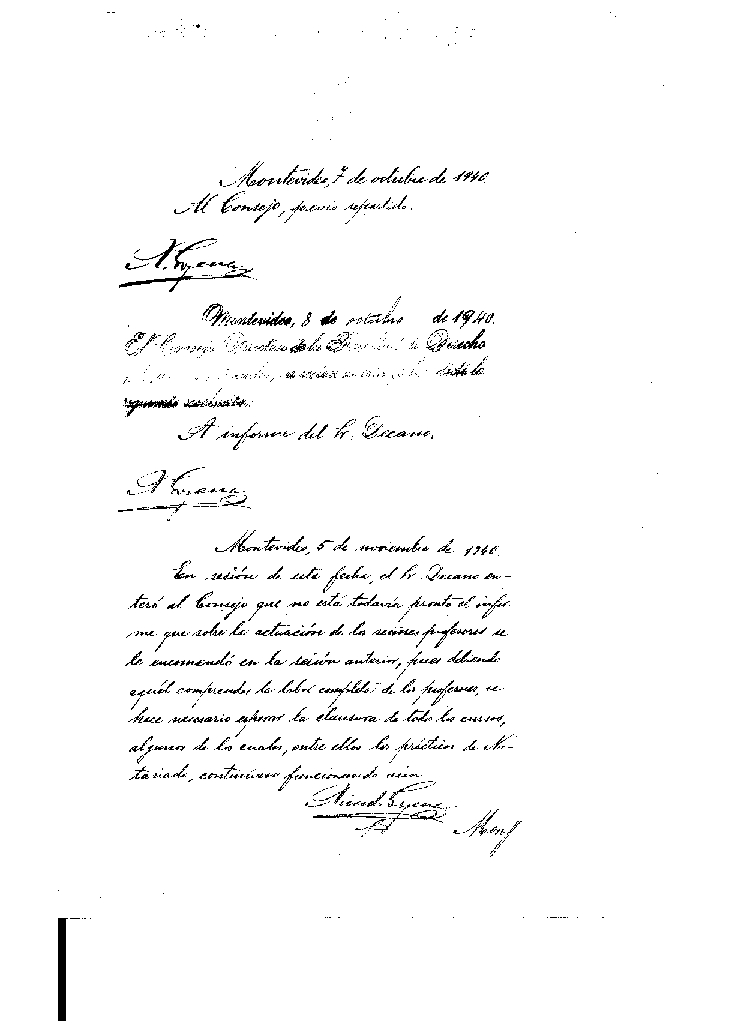 Montevideo, 7 de octubre de 1940.
Al Consejo, previo repartido.
Montevideo, 8 de octubre de 1940.
El Consejo Directivo de la Facultad de Derecho
siguiente resolución:
A informe del Sr. Decano.
Montevideo, 5 de noviembre de 1940.
En sesión de esta fecha, el Sr. Decano en-
teró al Consejo que no está todavía pronto el infor
me que sobre la actuación de los señores profesores se
le encomendó en la sesión anterior, pues debiendo
aquél comprender la labor completa de los profesores, se
hace necesario esperar la clausura de todos los cursos,
algunos de los cuales, entre ellos los prácticos de No-
tariado, continúan funcionando aún.